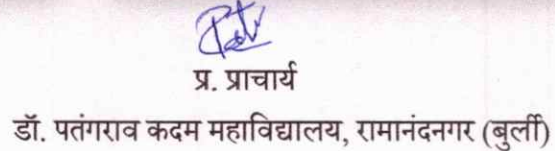 प्र. प्राचार्य
डॉ. पतंगराव कदम महाविद्यालय, रामानंदनगर (बुर्ली)